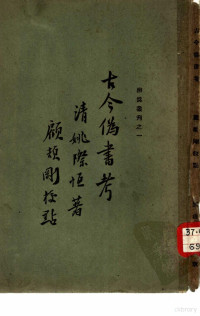 辨偽叢刊之一
古今偽書考
清姚際恒著
顧頡剛校點
37.
69